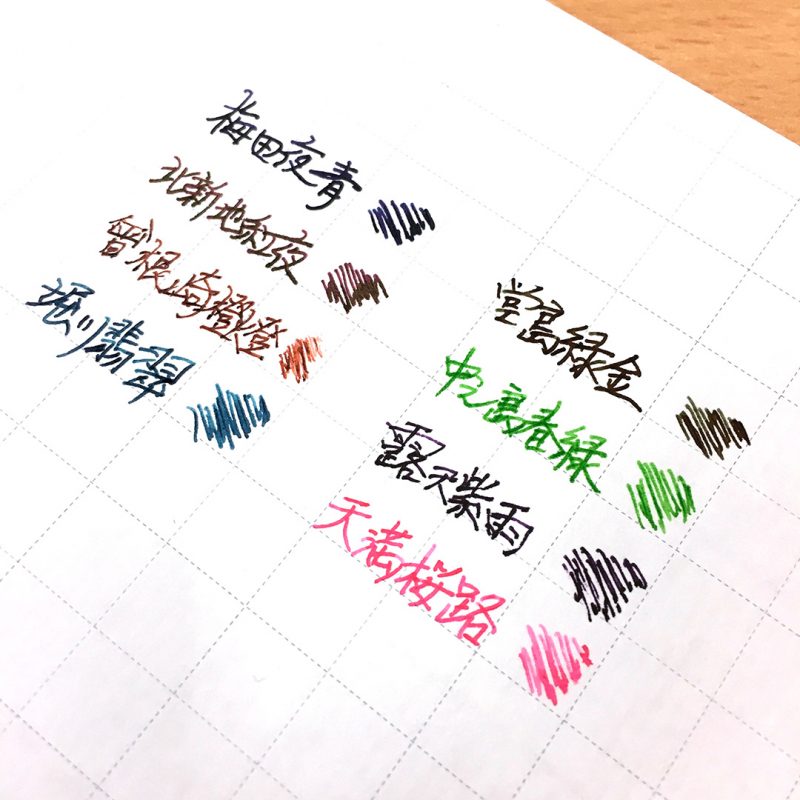 梅田夜青
北新地紅夜
曾根崎
堀川翡翠
堂島緑金
中之島春緑
露天紫雨
天満桜路